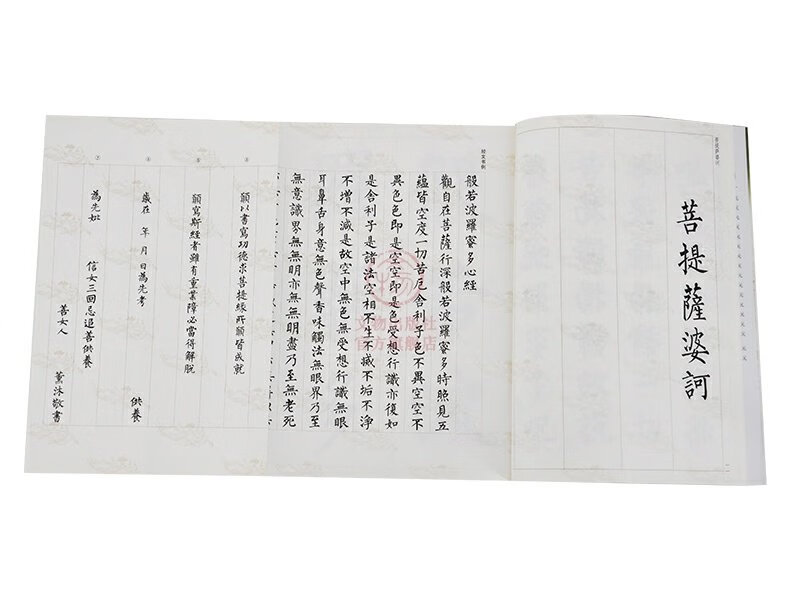 菩提薩婆訶
经文书例
般若波羅蜜多心經
觀自在菩薩行深般若波羅蜜多時照見五
蘊皆空度一切苦厄舍利子色不異空空不
異色色即是空空即是色受想行識亦復如
是舍利子是諸法空相不生不滅不垢不淨
不增不減是故空中無色無受想行識無眼
耳鼻舌身意無色聲香味觸法無眼界乃至
無意識界無無明亦無無明盡乃至無老死
願以書寫功德求菩提緣所願皆成就
願寫斯經者雖有重業障必當得解脫
歲在 年 月 日為先考 供養
為先妣 信女三回忌追善供養
善女人 薰沐敬書
文物出版社
官方旗舰店